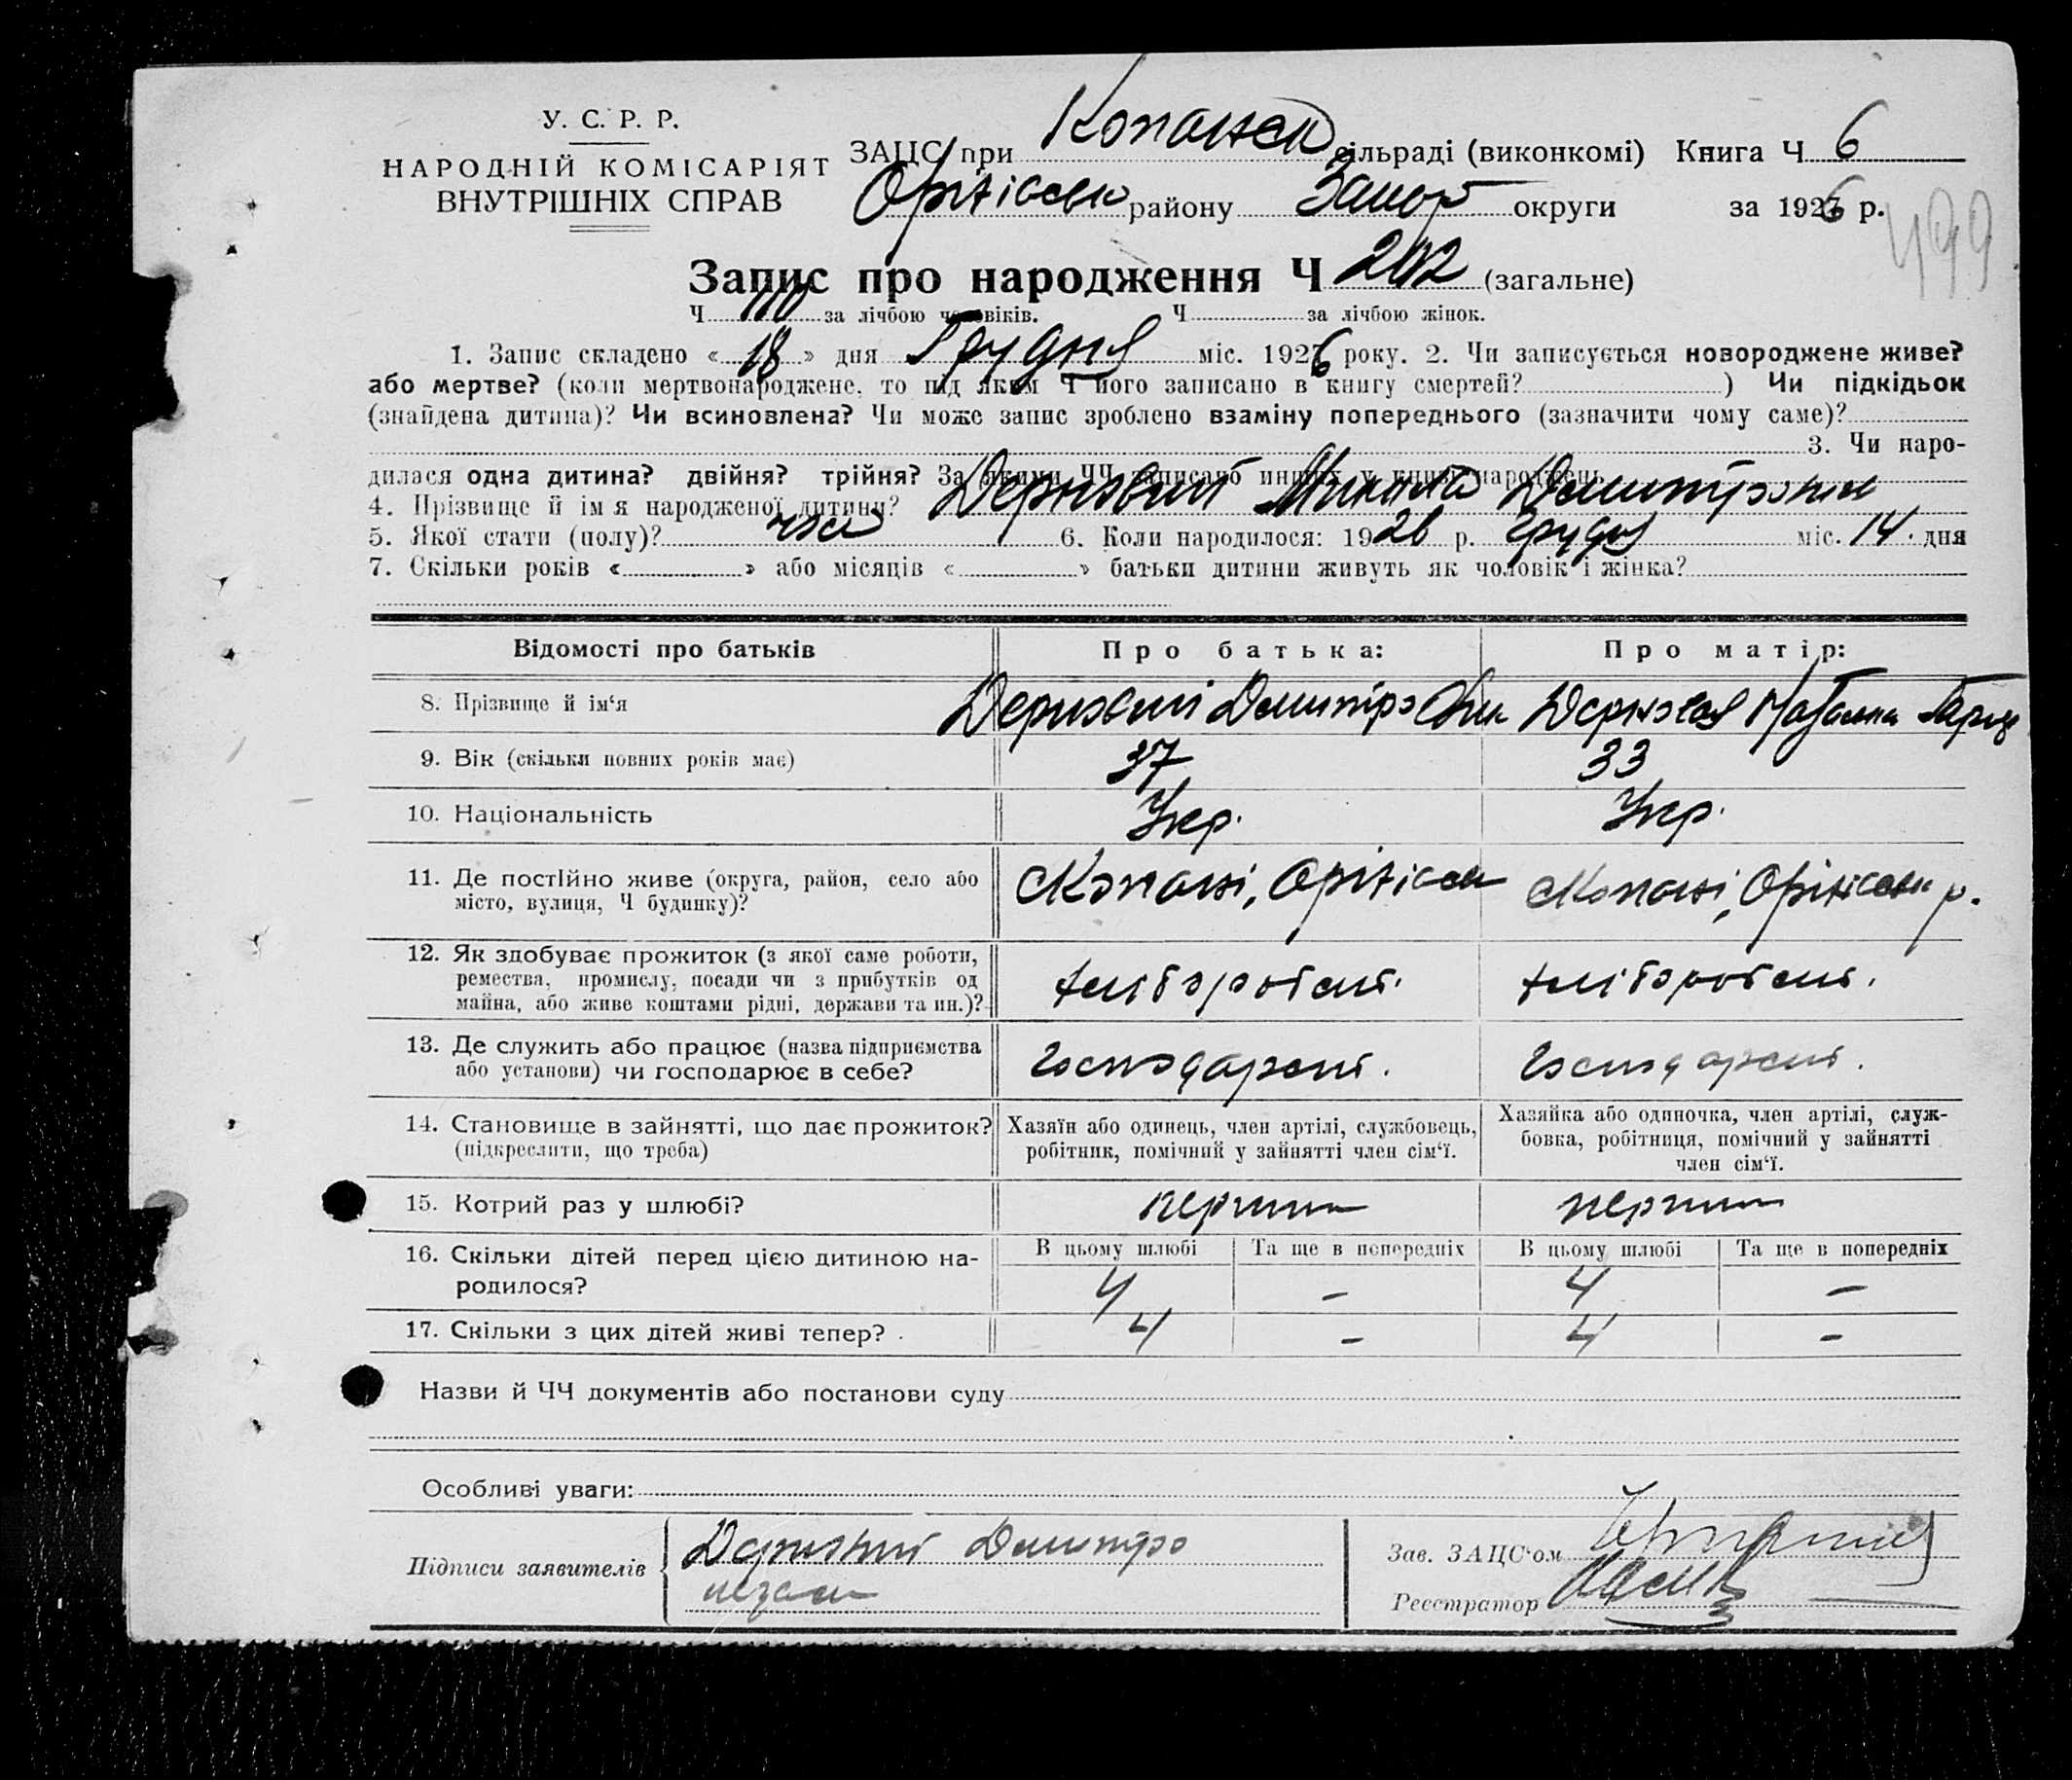 У. С. Р. Р.
НАРОДНІЙ КОМІСАРІЯТ
ВНУТРІШНІХ СПРАВ
ЗАЦС при Копанськ сільраді (виконкомі) Книга Ч 6
Оріхівськ району Запор округи за 1926 р.
499
Запис про народження Ч 202 (загальне)
Ч 110 за лічбою чоловіків. Ч за лічбою жінок.
1. Запис складено « 18 » дня Грудня міс. 1926 року. 2. Чи записується новороджене живе?
або мертве? (коли мертвонароджене, то під яким Ч його записано в книгу смертей? ) Чи підкідьок
(знайдена дитина)? Чи всиновлена? Чи може запис зроблено взаміну попереднього (зазначити чому саме)?
3. Чи наро-
дилася одна дитина? двійня? трійня? За якими ЧЧ записано инших у книзі народжень
4. Прізвище й ім я народженої дитини? Микола
5. Якої стати (полу)? чол 6. Коли народилося: 1926 р. грудня міс. 14 дня
7. Скільки років « » або місяців « » батьки дитини живуть як чоловік і жінка?
Відомості про батьків Про батька: Про матір:
8. Прізвище й ім‘я Дмитро
9. Вік (скільки повних років має) 37 33
10. Національність Укр. Укр.
11. Де постійно живе (округа, район, село або Копані, Оріхівськ Копані, Оріхівськ р.
місто, вулиця, Ч будинку)?
12. Як здобуває прожиток (з якої саме роботи, хліборобст. хліборобст.
ремества, промислу, посади чи з прибутків од
майна, або живе коштами рідні, держави та ин.)?
13. Де служить або працює (назва підприємства господарст. господарст.
або установи) чи господарює в себе?
14. Становище в зайнятті, що дає прожиток? Хазяїн або одинець, член артілі, службовець, Хазяйка або одиночка, член артілі, служ-
(підкреслити, що треба) робітник, помічний у зайнятті член сім‘ї. бовка, робітниця, помічний у зайнятті
член сім‘ї.
15. Котрий раз у шлюбі?
16. Скільки дітей перед цією дитиною на- В цьому шлюбі Та ще в попередніх В цьому шлюбі Та ще в попередніх
родилося? 4 – 4 –
17. Скільки з цих дітей живі тепер? 4 – 4 –
Назви й ЧЧ документів або постанови суду
Особливі уваги:
Підписи заявителів Дмитро
Зав. ЗАЦС‘ом
Реєстратор